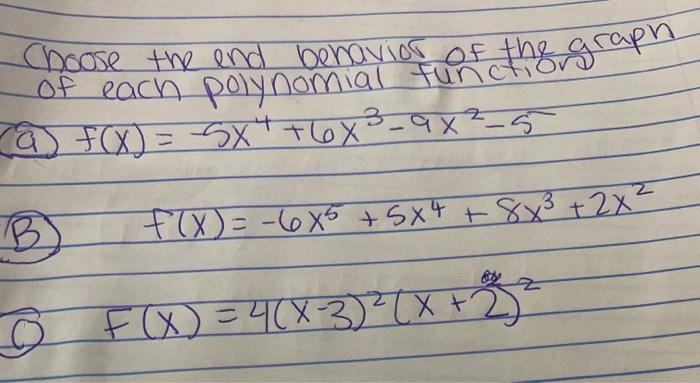 Choose the end behavior of the graph
of each polynomial function
(a) f(x) = -5x⁴ + 6x³ - 9x² - 5
(B) f(x) = -6x⁵ + 5x⁴ + 8x³ + 2x²
(C) F(x) = 4(x-3)²(x+2)²